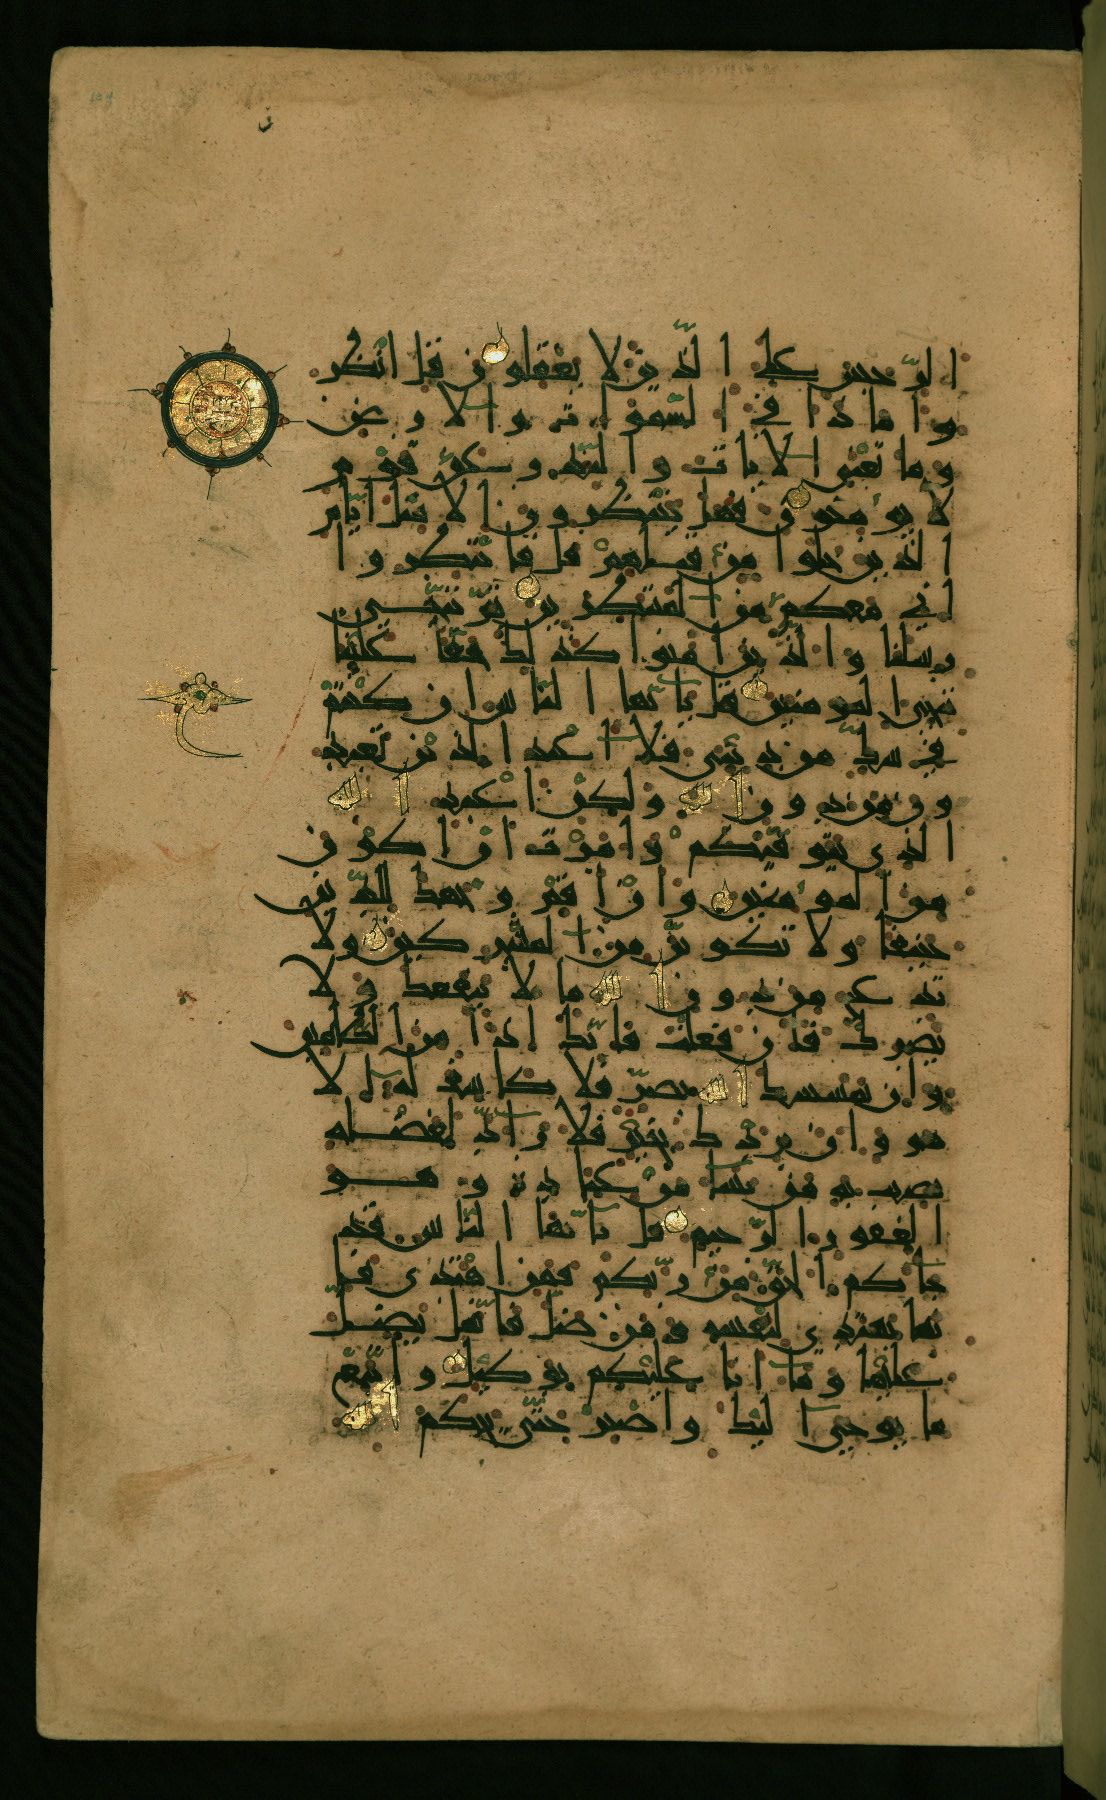 الرجس على الذين لا يعقلون قل انظر
وا ماذا في السموات والارض
وما تغني الايات والنذر عن قوم
لا يؤمنون فهل ينتظرون الا مثل ايام
الذين خلوا من قبلهم قل فانتظروا
اني معكم من المنتظرين ثم ننجي
رسلنا والذين امنوا كذلك حقا علينا
ننجي المومنين قل يايها الناس ان كنتم
في شك من ديني فلا اعبد الذين تعبد
ون من دون الله ولكن اعبد الله
الذي يتوفيكم وامرت ان اكون
من المومنين وان اقم وجهك للدين
حنيفا ولا تكونن من المشركين ولا
تدع من دون الله ما لا ينفعك ولا
يضرك فان فعلت فانك اذا من الظلمين
وان يمسسك الله بضر فلا كاشف له الا
هو وان يردك بخير فلا راد لفضله
يصيب به من يشا من عباده وهو
الغفور الرحيم قل يايها الناس قد
جاكم الحق من ربكم فمن اهتدى فا
نما يهتدي لنفسه ومن ضل فانما يضل
عليها وما انا عليكم بوكيل واتبع
ما يوحى اليك واصبر حتى يحكم الله